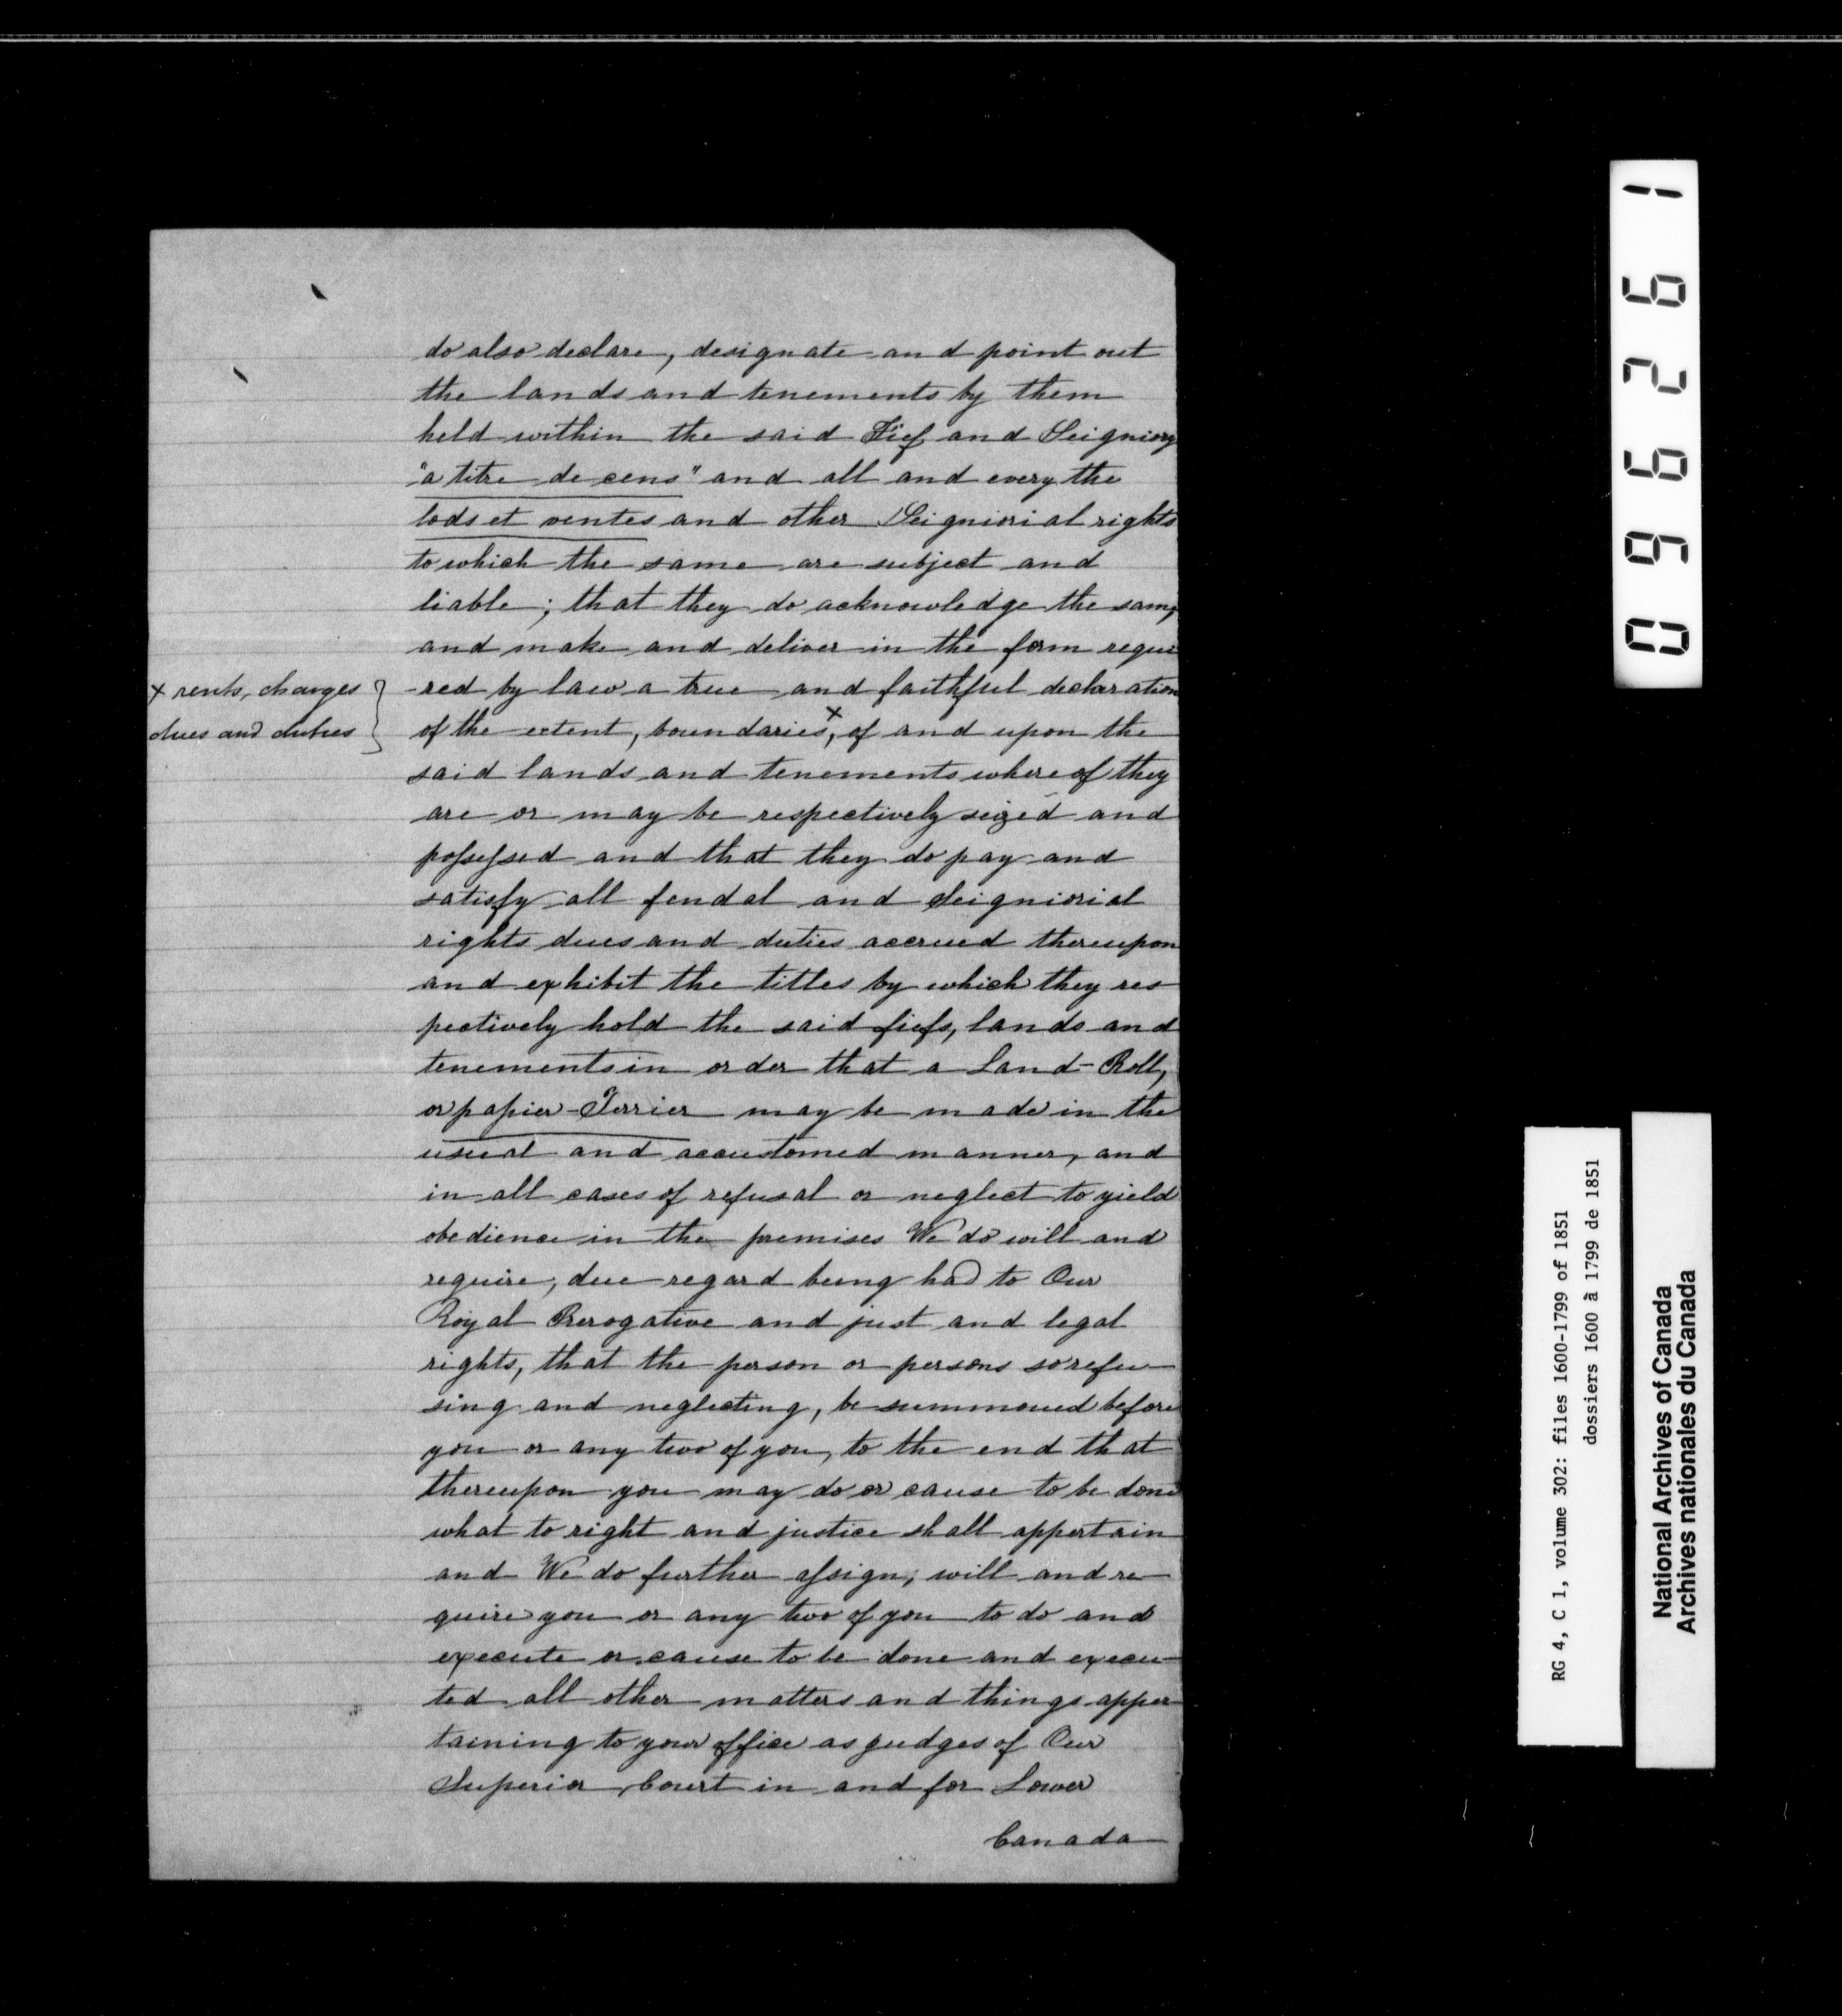 do also declare, designate and point out
the lands and tenements by them
held within the said Fief and Seigniory
"a titre de cens" and all and every the
lods et ventes and other Seigniorial rights
to which the same are subject and
liable; that they do acknowledge the same,
and make and deliver in the form requi
-red by law a true and faithful declaration
x rents, charges
dues and duties
of the extent, boundaries x, of and upon the
said lands and tenements whereof they
are or may be respectively seized and
possessed and that they do pay and
satisfy all feudal and Seigniorial
rights dues and duties accrued thereupon
and exhibit the titles by which they res
pectively hold the said fiefs, lands and
tenements in order that a Land-Roll,
or papier-Terrier may be made in the
usual and accustomed manner, and
in all cases of refusal or neglect to yield
obedience in the premises We do will and
require, due regard being had to Our
Royal Prerogative and just and legal
rights, that the person or persons so refu
sing and neglecting, be summoned before
you or any two of you, to the end that
thereupon you may do or cause to be done
what to right and justice shall appertain
and We do further assign, will and re
quire you or any two of you to do and
execute or cause to be done and execu
ted all other matters and things apper
taining to your office as judges of Our
Superior Court in and for Lower
Canada
096261
RG 4, C 1, volume 302: files 1600-1799 of 1851
dossiers 1600 à 1799 de 1851
National Archives of Canada
Archives nationales du Canada